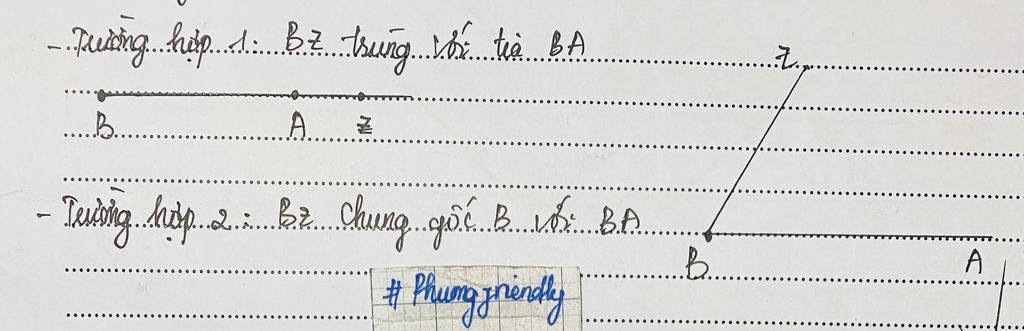 - Trường hợp 1: Bz trùng với tia BA
z
B A z
- Trường hợp 2: Bz chung gốc B với BA
B A
# Phungfriendly